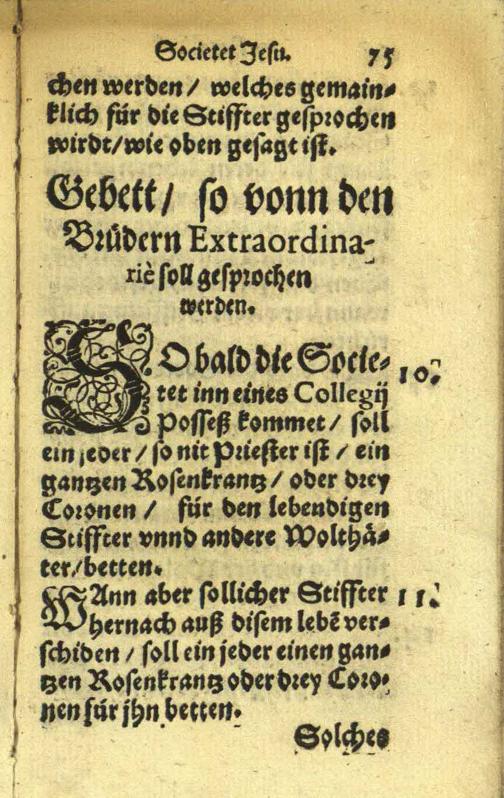 Societet Jesu. 75
chen werden / welches gemain⸗
klich für die Stiffter gesprochen
wirdt/wie oben gesagt ist.
Gebett / so vonn den
Brüdern Extraordina-
riè soll gesprochen
werden.
SO bald die Socie⸗ 10.
tet inn eines Collegij
Posseß kommet / soll
ein jeder / so nit Priester ist / ein
gantzen Rosenkrantz / oder drey
Coronen / für den lebendigen
Stiffter vnnd andere Wolthä⸗
ter/betten.
WAnn aber sollicher Stiffter 11.
hernach auß disem lebē ver⸗
schiden / soll ein jeder einen gan⸗
tzen Rosenkrantz oder drey Coro⸗
nen für jhn betten.
Solches